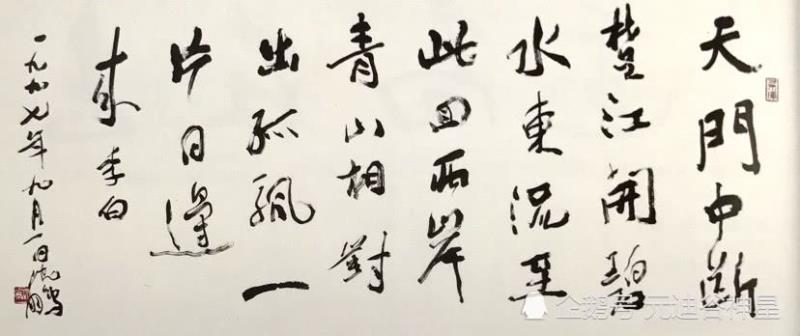 天門中斷
楚江開碧
水東流至
此回两岸
青山相對
出孤颿一
片日邊
来李白
一九九七年九月一日沈鵬
企鹅号 元迪谷神星